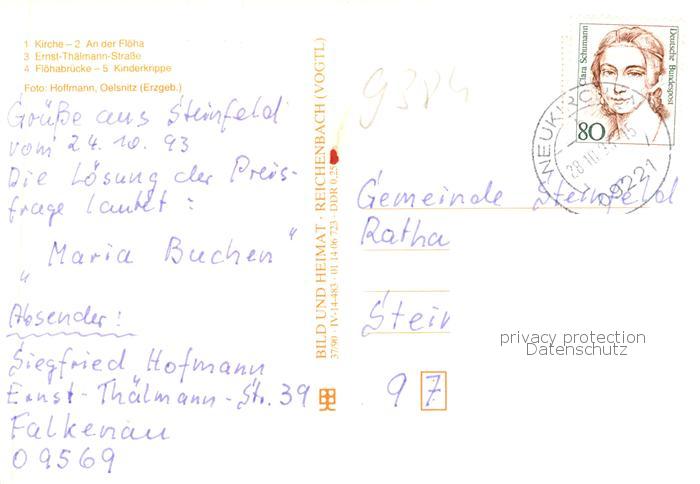 1 Kirche – 2 An der Flöha
3 Ernst-Thälmann-Straße
4 Flöhabrücke – 5 Kinderkrippe
Foto: Hoffmann, Oelsnitz (Erzgeb.)
Grüße aus Steinfeld
vom 24.10.93
Die Lösung der Preis-
frage lautet:
„Maria Buchen"
Absender:
Siegfried Hofmann
Ernst-Thälmann-Str. 39
Falkenau
09569
BILD UND HEIMAT · REICHENBACH (VOGTL)
37/90 · IV-14-483 · 01 14 06 723 · DDR 0,25
Clara Schumann
Deutsche Bundespost
80
09221
Gemeinde Steinfeld
Ratha
Stein
97
privacy protection
Datenschutz